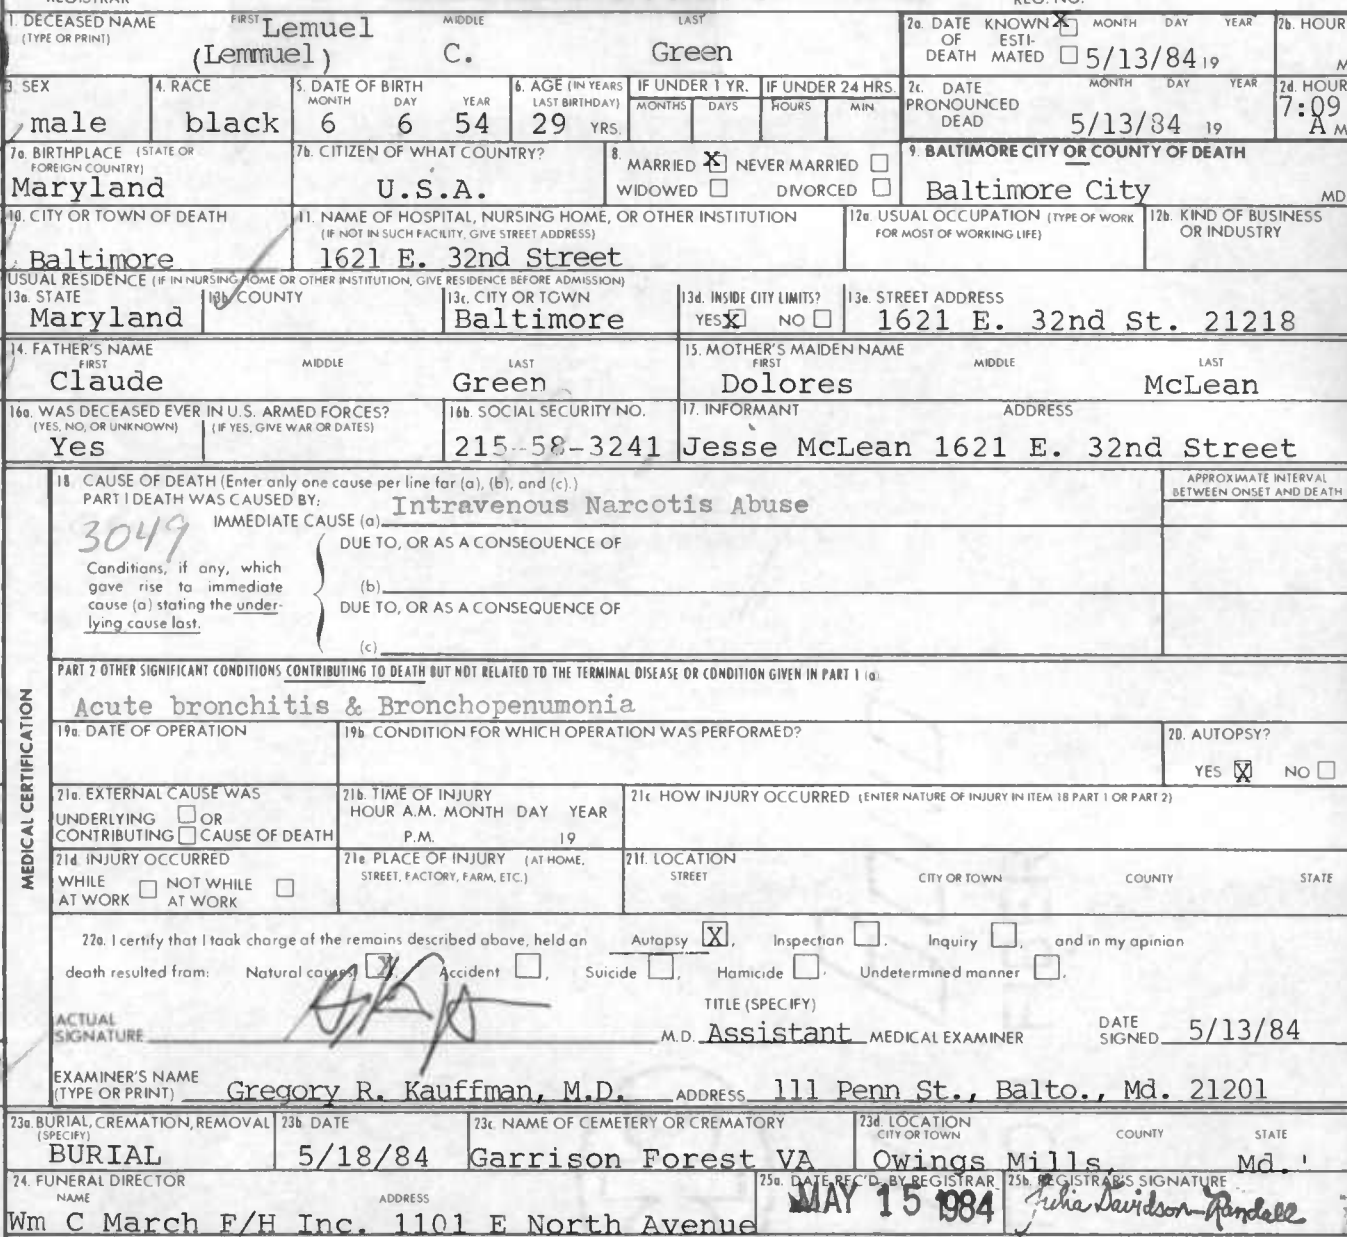 1. DECEASED NAME FIRST MIDDLE LAST
(TYPE OR PRINT)
Lemuel
(Lemmuel) C. Green
2a. DATE KNOWN X MONTH DAY YEAR
OF ESTI-
DEATH MATED 5/13/84 19
2b. HOUR
M
3. SEX
male
4. RACE
black
5. DATE OF BIRTH
MONTH DAY YEAR
6 6 54
6. AGE (IN YEARS
LAST BIRTHDAY)
29 YRS.
IF UNDER 1 YR.
MONTHS DAYS
IF UNDER 24 HRS.
HOURS MIN.
2c. DATE MONTH DAY YEAR
PRONOUNCED
DEAD 5/13/84 19
2d. HOUR
7:09
A M
7a. BIRTHPLACE (STATE OR
FOREIGN COUNTRY)
Maryland
7b. CITIZEN OF WHAT COUNTRY?
U.S.A.
8. MARRIED X NEVER MARRIED
WIDOWED DIVORCED
9. BALTIMORE CITY OR COUNTY OF DEATH
Baltimore City MD
10. CITY OR TOWN OF DEATH
Baltimore
11. NAME OF HOSPITAL, NURSING HOME, OR OTHER INSTITUTION
(IF NOT IN SUCH FACILITY, GIVE STREET ADDRESS)
1621 E. 32nd Street
12a. USUAL OCCUPATION (TYPE OF WORK
FOR MOST OF WORKING LIFE)
12b. KIND OF BUSINESS
OR INDUSTRY
USUAL RESIDENCE (IF IN NURSING HOME OR OTHER INSTITUTION, GIVE RESIDENCE BEFORE ADMISSION)
13a. STATE
Maryland
13b. COUNTY
13c. CITY OR TOWN
Baltimore
13d. INSIDE CITY LIMITS?
YES X NO
13e. STREET ADDRESS
1621 E. 32nd St. 21218
14. FATHER'S NAME
FIRST MIDDLE LAST
Claude Green
15. MOTHER'S MAIDEN NAME
FIRST MIDDLE LAST
Dolores McLean
16a. WAS DECEASED EVER IN U.S. ARMED FORCES?
(YES, NO, OR UNKNOWN) (IF YES, GIVE WAR OR DATES)
Yes
16b. SOCIAL SECURITY NO.
215-58-3241
17. INFORMANT ADDRESS
Jesse McLean 1621 E. 32nd Street
MEDICAL CERTIFICATION
18 CAUSE OF DEATH (Enter only one cause per line for (a), (b), and (c).)
PART I DEATH WAS CAUSED BY:
IMMEDIATE CAUSE (a) Intravenous Narcotis Abuse
APPROXIMATE INTERVAL
BETWEEN ONSET AND DEATH
3049
DUE TO, OR AS A CONSEQUENCE OF
Conditions, if any, which
gave rise to immediate
cause (a) stating the under-
lying cause last.
(b)
DUE TO, OR AS A CONSEQUENCE OF
(c)
PART 2 OTHER SIGNIFICANT CONDITIONS CONTRIBUTING TO DEATH BUT NOT RELATED TO THE TERMINAL DISEASE OR CONDITION GIVEN IN PART 1 (a)
Acute bronchitis & Bronchopenumonia
19a. DATE OF OPERATION
19b CONDITION FOR WHICH OPERATION WAS PERFORMED?
20. AUTOPSY?
YES X NO
21a. EXTERNAL CAUSE WAS
UNDERLYING OR
CONTRIBUTING CAUSE OF DEATH
21b. TIME OF INJURY
HOUR A.M. MONTH DAY YEAR
P.M. 19
21c HOW INJURY OCCURRED (ENTER NATURE OF INJURY IN ITEM 18 PART 1 OR PART 2)
21d INJURY OCCURRED
WHILE NOT WHILE
AT WORK AT WORK
21e PLACE OF INJURY (AT HOME,
STREET, FACTORY, FARM, ETC.)
21f. LOCATION
STREET CITY OR TOWN COUNTY STATE
22a. I certify that I took charge of the remains described above, held an Autopsy X, Inspection, Inquiry, and in my opinion
death resulted from: Natural causes X, Accident, Suicide, Homicide, Undetermined manner.
TITLE (SPECIFY)
ACTUAL
SIGNATURE M.D. Assistant MEDICAL EXAMINER
DATE
SIGNED 5/13/84
EXAMINER'S NAME
(TYPE OR PRINT) Gregory R. Kauffman, M.D. ADDRESS 111 Penn St., Balto., Md. 21201
23a. BURIAL, CREMATION, REMOVAL
(SPECIFY)
BURIAL
23b DATE
5/18/84
23c NAME OF CEMETERY OR CREMATORY
Garrison Forest VA
23d. LOCATION
CITY OR TOWN COUNTY STATE
Owings Mills, Md.
24. FUNERAL DIRECTOR
NAME ADDRESS
Wm C March F/H Inc. 1101 E North Avenue
25a. DATE REC'D. BY REGISTRAR
MAY 15 1984
25b. REGISTRAR'S SIGNATURE
Julia Davidson-Randall